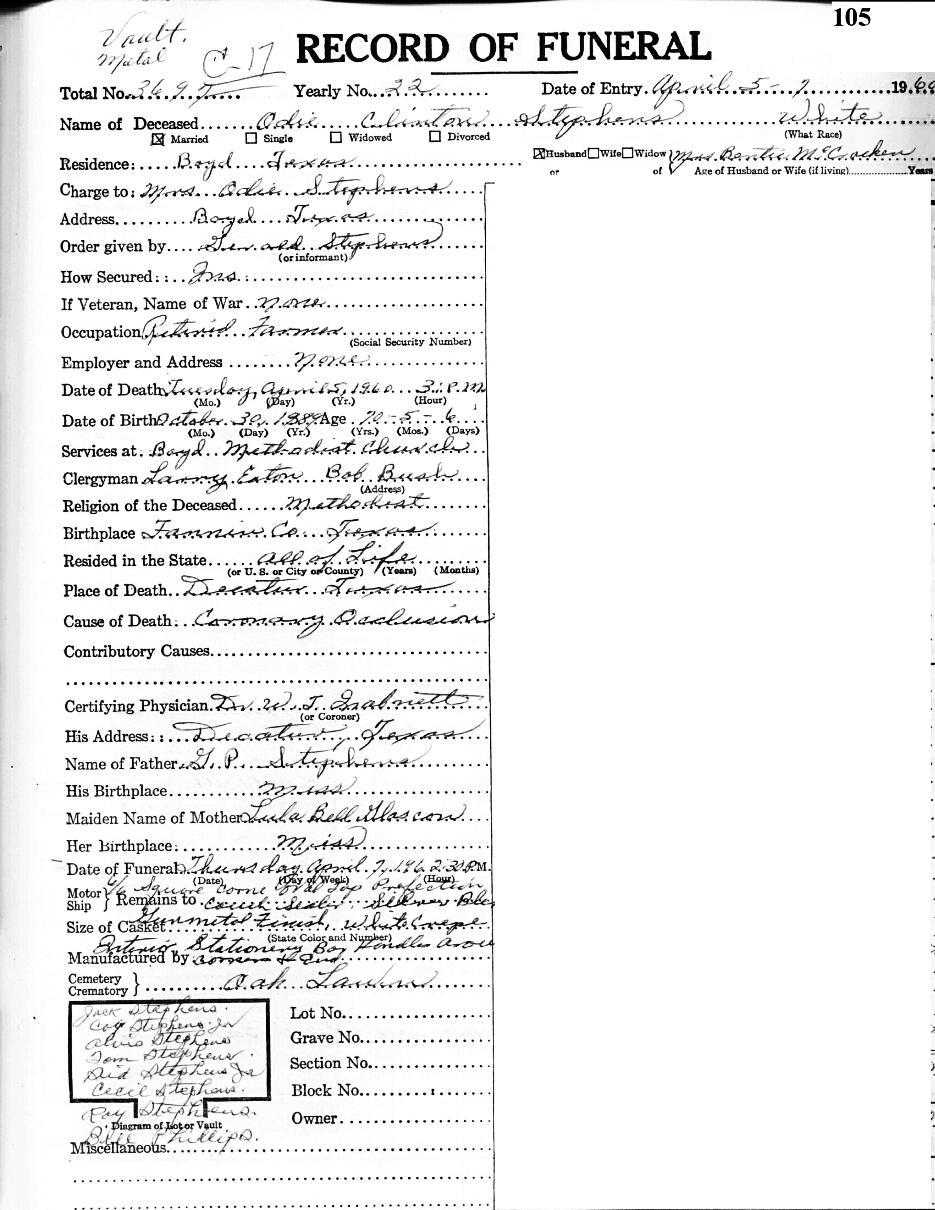 105
Vault.
Metal C-17
RECORD OF FUNERAL
Total No. 369 Yearly No. 22 Date of Entry April 5-7 1960
Name of Deceased Odie Clinton Stephens White
☒ Married ☐ Single ☐ Widowed ☐ Divorced (What Race)
Residence: Boyd Texas ☒ Husband ☐ Wife ☐ Widow Mrs. Bertie McCracken
or of Age of Husband or Wife (if living) Years
Charge to: Mrs Odie Stephens
Address Boyd Texas
Order given by Gerald Stephens
(or informant)
How Secured: Ins.
If Veteran, Name of War none
Occupation Retired Farmer
(Social Security Number)
Employer and Address None
Date of Death Tuesday, April 5, 1960 3: P.M
(Mo.) (Day) (Yr.) (Hour)
Date of Birth October 30, 1889 Age 70-5-6
(Mo.) (Day) (Yr.) (Yrs.) (Mos.) (Days)
Services at: Boyd Methodist Church
Clergyman Larry Eaton Bob Bush
(Address)
Religion of the Deceased Methodist
Birthplace Fannin Co. Texas
Resided in the State All of Life
(or U. S. or City or County) (Years) (Months)
Place of Death Decatur Texas
Cause of Death Coronary Occlusion
Contributory Causes
Certifying Physician Dr. W. J.
(or Coroner)
His Address: Decatur, Texas
Name of Father G. P. Stephens
His Birthplace Miss
Maiden Name of Mother Lula Bell
Her Birthplace: Miss
Date of Funeral Thursday April 7, 196 2:30 P.M.
(Date) (Day of Week) (Hour)
6/6 Square Corne Oval Top Perfection
Motor Ship } Remains to Couch Sealer Silver
Size of Casket Gunmetal Finish, White Crepe
(State Color and Number)
Interior Stationery Bar Handles
Manufactured by & End
Cemetery Crematory } Oak
Jack Stephens.
Coy Stephens Jr
Alvis Stephens
Tom Stephens
Sid Stephens Jr
Cecil Stephens.
Ray Stephens.
Diagram of Lot or Vault
Bill Phillips.
Lot No.
Grave No.
Section No.
Block No.
Owner
Miscellaneous